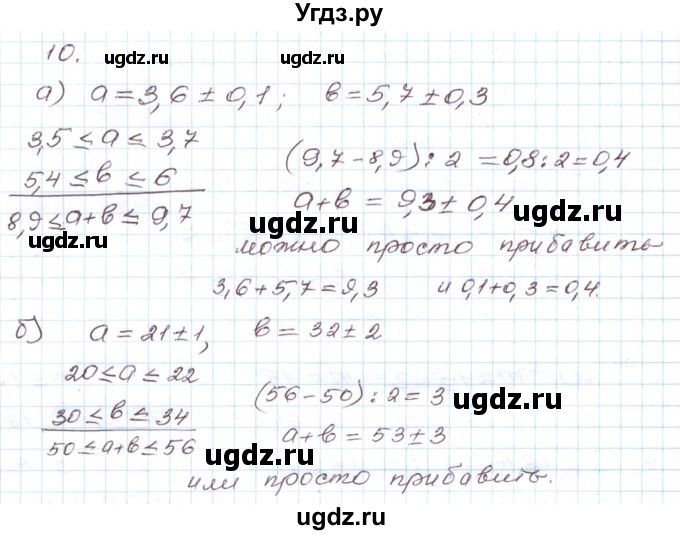 Угдз.ру
10.
ugdz.ru ugdz.ru
а) a = 3,6 ± 0,1; в = 5,7 ± 0,3
3,5 ≤ a ≤ 3,7
(9,7 - 8,9) : 2 = 0,8 : 2 = 0,4
5,4 ≤ в ≤ 6
8,9 ≤ a+в ≤ 9,7
a + в = 9,3 ± 0,4
ugdz.ru ugdz.ru
можно просто прибавить
3,6 + 5,7 = 9,3 и 0,1 + 0,3 = 0,4.
б) a = 21 ± 1, в = 32 ± 2
ugdz.ru ugdz.ru
20 ≤ a ≤ 22
(56 - 50) : 2 = 3
30 ≤ в ≤ 34
50 ≤ a+в ≤ 56
a + в = 53 ± 3
ugdz.ru ugdz.ru
или просто прибавить.
ugdz.ru